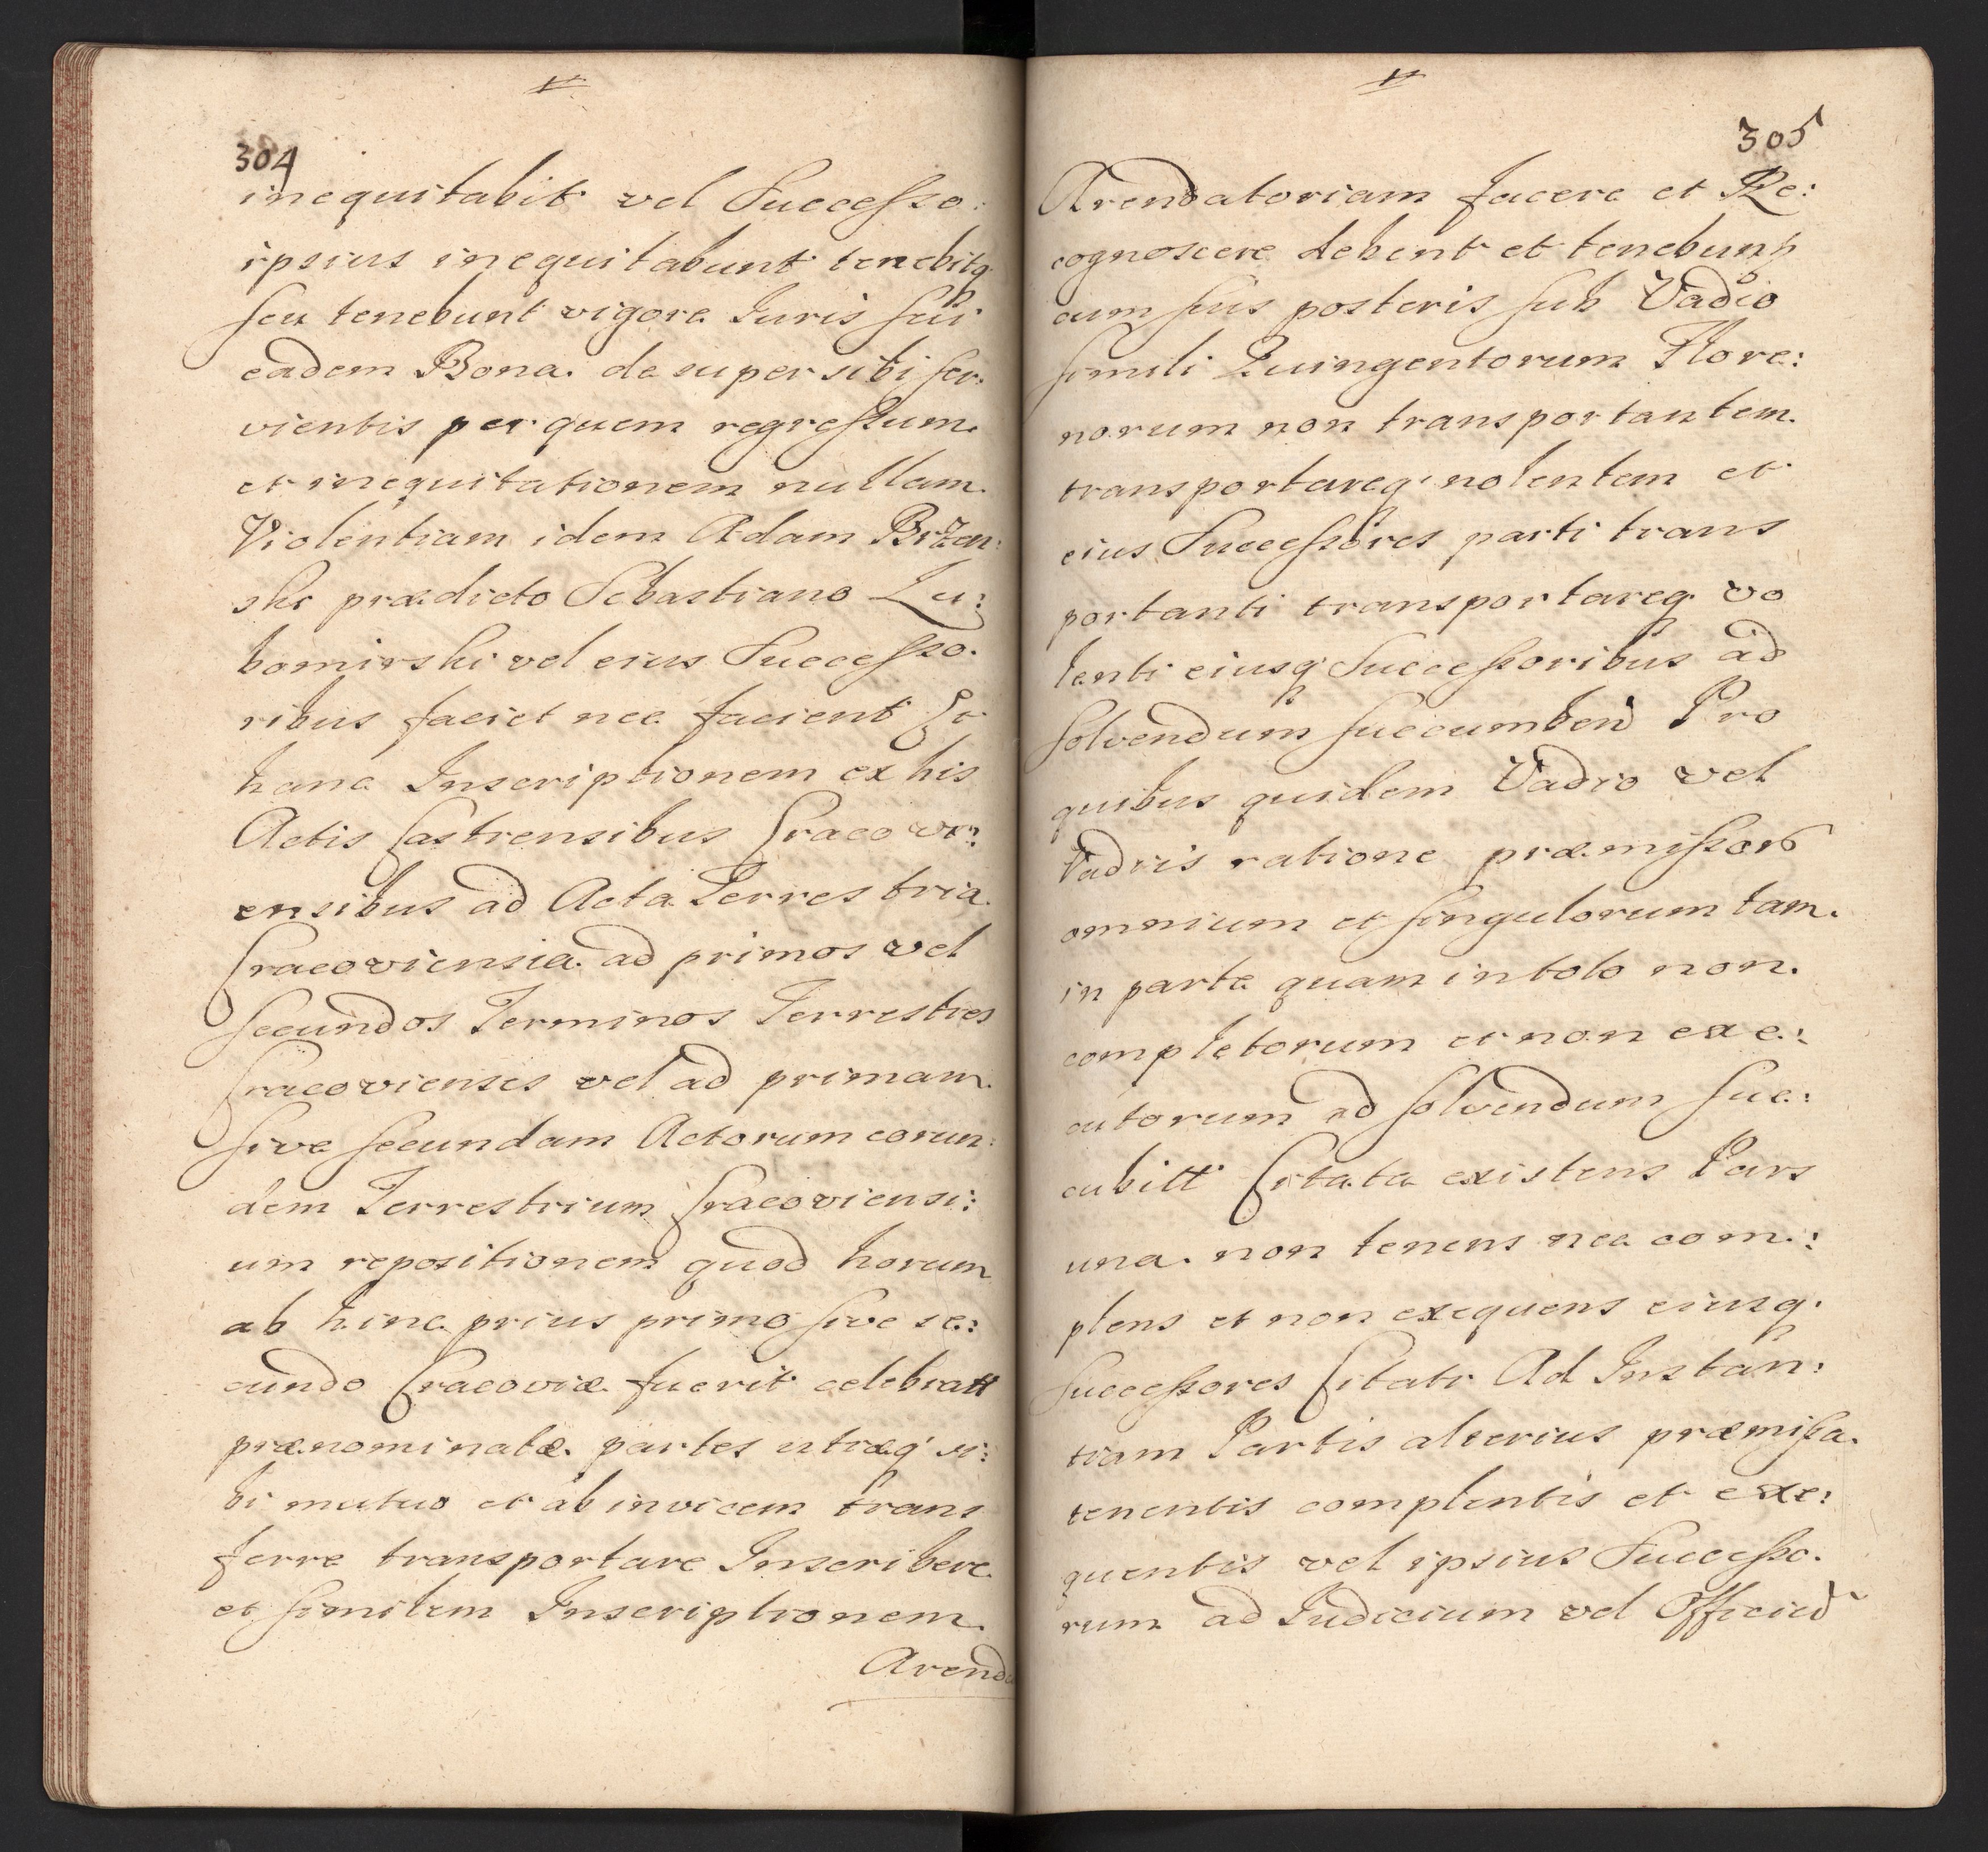 304
inequitabit vel Successo:
ipsius inequitabunt tenebitq
seu tenebunt vigore Iuris sui
eadem Bona desuper sibi ser:
vientis per quem regressum
et inequitationem nullam
Violentiam idem Adam Brzen:
ski prædicto Sebastiano Lu:
bomirski vel eius Successo:
ribus faciet nec facient Et
hanc Inscriptionem ex his
Actis Castrensibus Cracovi:
ensibus ad Acta Terrestria
Cracoviensia ad primos vel
secundos Terminos Terrestres
Cracovienses vel ad primam
sive secundam Actorum eorun:
dem Terrestrium Cracoviensi:
um repositionem quod horum
ab hinc prius primo sive se:
cundo Cracoviæ fuerit celebratt
prænominatæ partes utræq si:
bi mutuo et ab invicem trans
ferre transportare Inscribere
et similem Inscriptionem
Arenda
305
Arendatoriam facere et Re:
cognoscere debent et tenebunt
cum suis posteris sub Vadio
simili Quingentorum Flore:
norum non transportantem
transportareq nolentem et
eius Successores parti trans
portanti transportareq vo
lenti eiusq Successoribus ad
solvendum succumbend Pro
quibus quidem Vadio vel
Vadiis ratione præmissor
omnium et singulorum tam
in parte quam in toto non
completorum et non exe:
cutorum ad solvendum suc:
cubitt Citata existens Pars
una non tenens nec com:
plens et non exequens eiusq
Successores Citati Ad Instan:
tiam Partis alterius præmissa
tenentis complentis et exe:
quentis vel ipsius Successo:
rum ad Iudicium vel Officiu